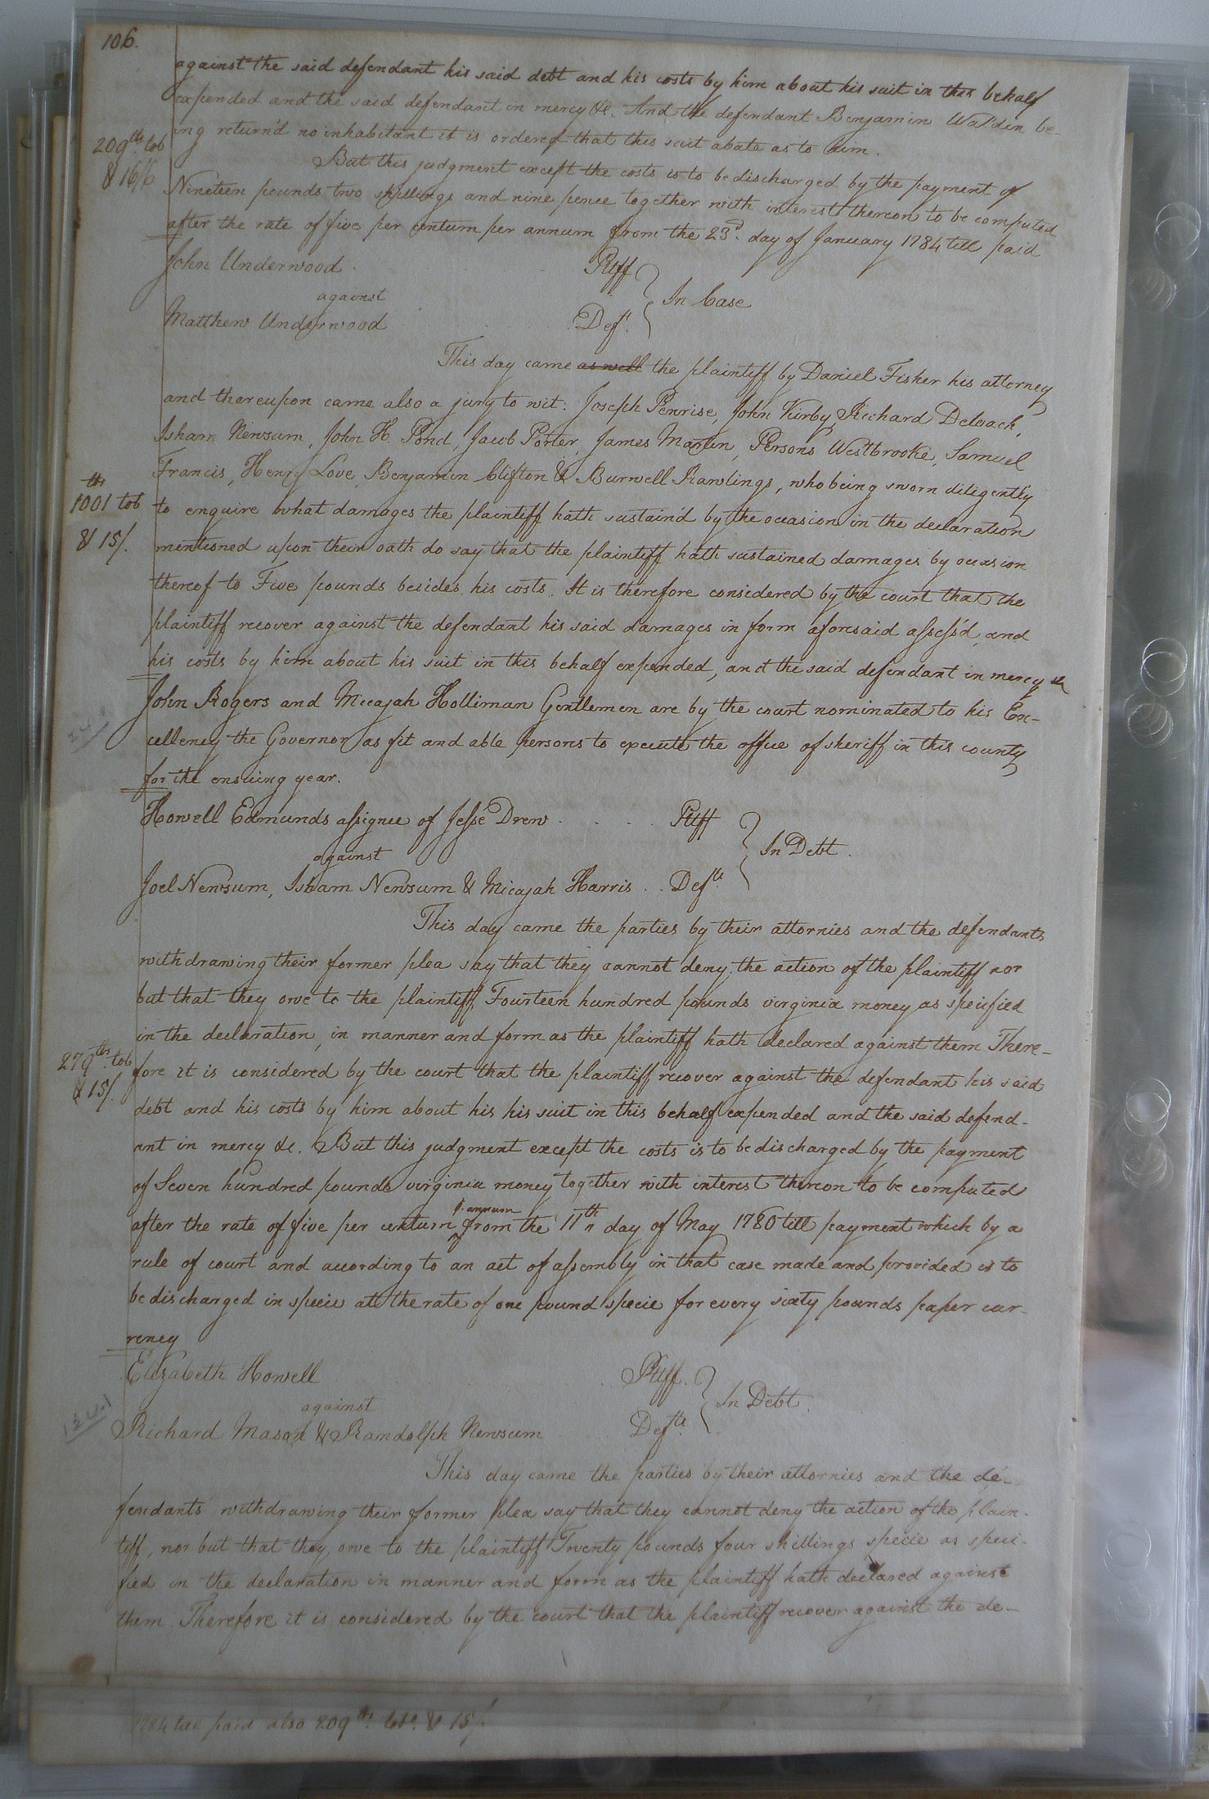 106.
against the said defendant his said debt and his costs by him about his suit in this behalf
expended and the said defendant in mercy &c. And the defendant Benjamin Waldin be-
ing return'd no inhabitant it is ordered that this suit abate as to him.
209 lb tob
& 16/6
But this judgment except the costs is to be discharged by the payment of
Nineteen pounds two shillings and nine pence together with interest thereon to be computed
after the rate of five per centum per annum from the 23d. day of January 1784 till paid
John Underwood . Pltff
against
In Case
Matthew Underwood Deft.
This day came as well the plaintiff by Daniel Fisher his attorney
and thereupon came also a jury to wit: Joseph Penrise, John Kirby, Richard Deloach,
Isham Newsum, John H. Pond, Jacob Porter, James Martin, Persons Westbrooke, Samuel
Francis, Henry Love, Benjamin Clifton & Burwell Rawlings, who being sworn diligently
1001 lb tob
& 15/.
to enquire what damages the plaintiff hath sustain'd by the occasion in the declaration
mentioned upon their oath do say that the plaintiff hath sustained damages by occasion
thereof to Five pounds besides his costs. It is therefore considered by the court that the
plaintiff recover against the defendant his said damages in form aforesaid assess'd, and
his costs by him about his suit in this behalf expended, and the said defendant in mercy &c
John Rogers and Micajah Holliman Gentlemen are by the court nominated to his Ex-
cellency the Governor as fit and able persons to execute the office of sheriff in this county
for the ensuing year.
Howell Edmunds assignee of Jesse Drew . . . . Pltff
against
In Debt.
Joel Newsum, Isham Newsum & Micajah Harris . . Defts.
This day came the parties by their attornies and the defendants
withdrawing their former plea say that they cannot deny the action of the plaintiff nor
but that they owe to the plaintiff Fourteen hundred pounds virginia money as specified
in the declaration, in manner and form as the plaintiff hath declared against them There-
279 lb. tob
& 15/.
fore it is considered by the court that the plaintiff recover against the defendant his said
debt and his costs by him about his his suit in this behalf expended and the said defend-
ant in mercy &c. But this judgment except the costs is to be discharged by the payment
of Seven hundred pounds virginia money together with interest thereon to be computed
after the rate of five per centum p. annum from the 11th day of May 1780 till payment which by a
rule of court and according to an act of assembly in that case made and provided is to
be discharged in specie att the rate of one pound specie for every sixty pounds paper cur-
rency
Elizabeth Howell Pltff.
against
In Debt.
Richard Mason & Randolph Newsum Defts.
This day came the parties by their attornies and the de-
fendants withdrawing their former plea say that they cannot deny the action of the plain-
tiff, nor but that they owe to the plaintiff Twenty pounds four shillings specie as speci-
fied in the declaration in manner and form as the plaintiff hath declared against
them. Therefore it is considered by the court that the plaintiff recover against the de-
1784 till paid also 209 lb. tob. & 15/.